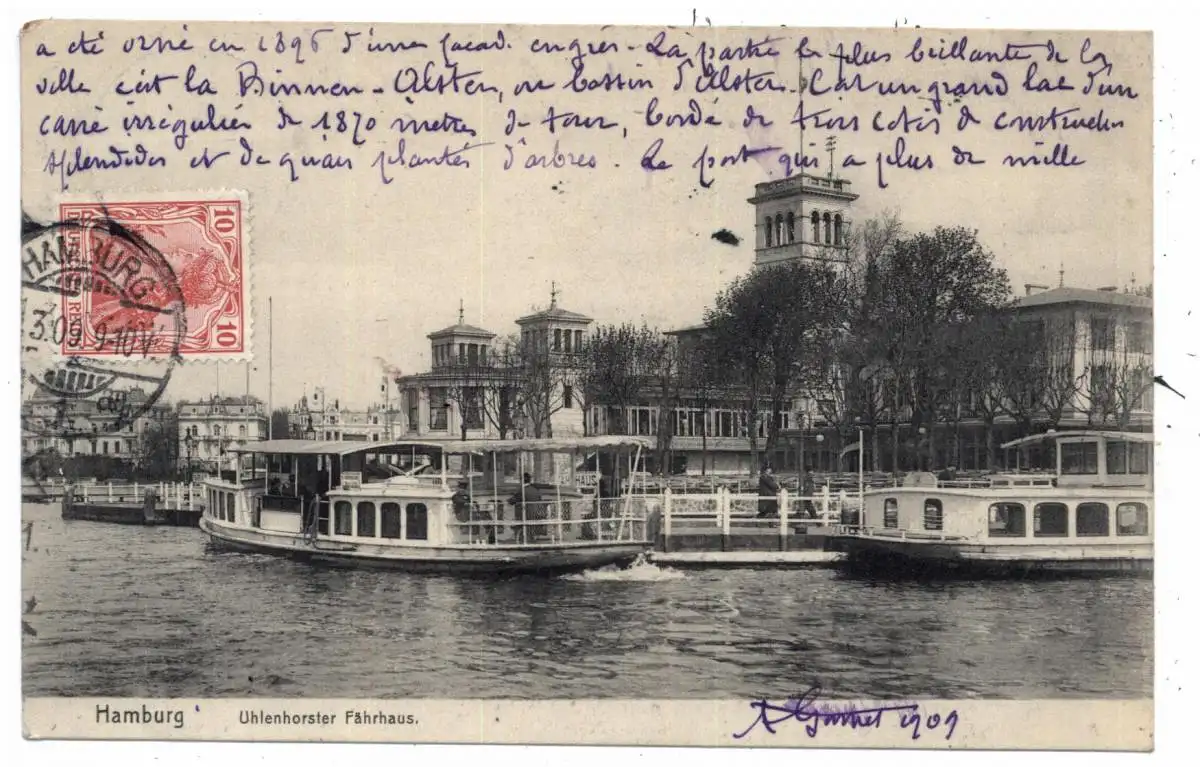 a été orné en 1896 d'une façade en grès. La partie la plus brillante de la
ville est la Binnen-Alster, ou bassin d'Alster. C'est un grand lac d'un
carré irrégulier de 1870 mètres de tour, bordé de trois côtés de constructions
splendides et de quais plantés d'arbres. Le port qui a plus de mille
10 10
DEUTSCHES REICH
10
HAMBURG
3.09. 9-10V
Hamburg
Uhlenhorster Fährhaus.
1909